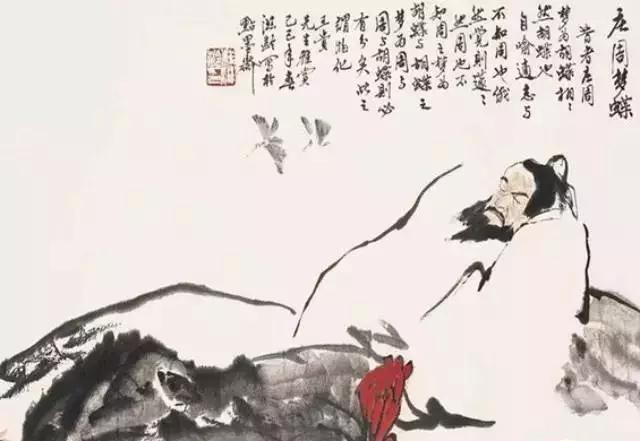 庄周梦蝶
昔者庄周
梦为胡蝶栩々
然胡蝶也
自喻適志与
不知周也俄
然觉则蘧々
然周也不
知周之梦为
胡蝶与胡蝶之
梦为周与
周与胡蝶则必
有分矣此之
谓物化
王贵
先生雅赏
己巳年春
写於
點墨